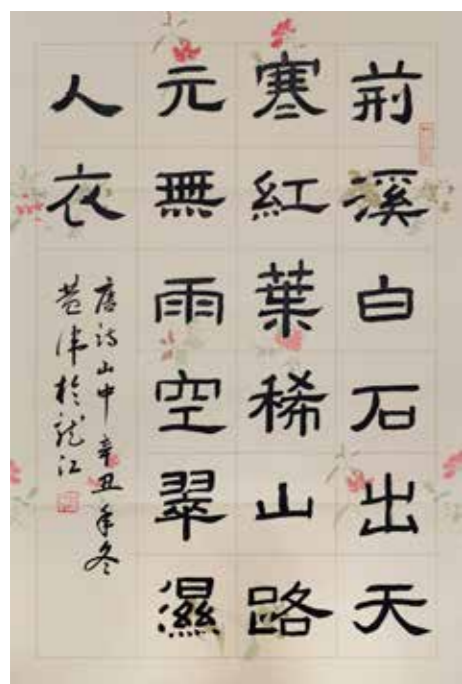 荊溪白石出天
寒紅葉稀山路
元無雨空翠濕
人衣
唐詩山中辛丑年冬
黃津於龍江